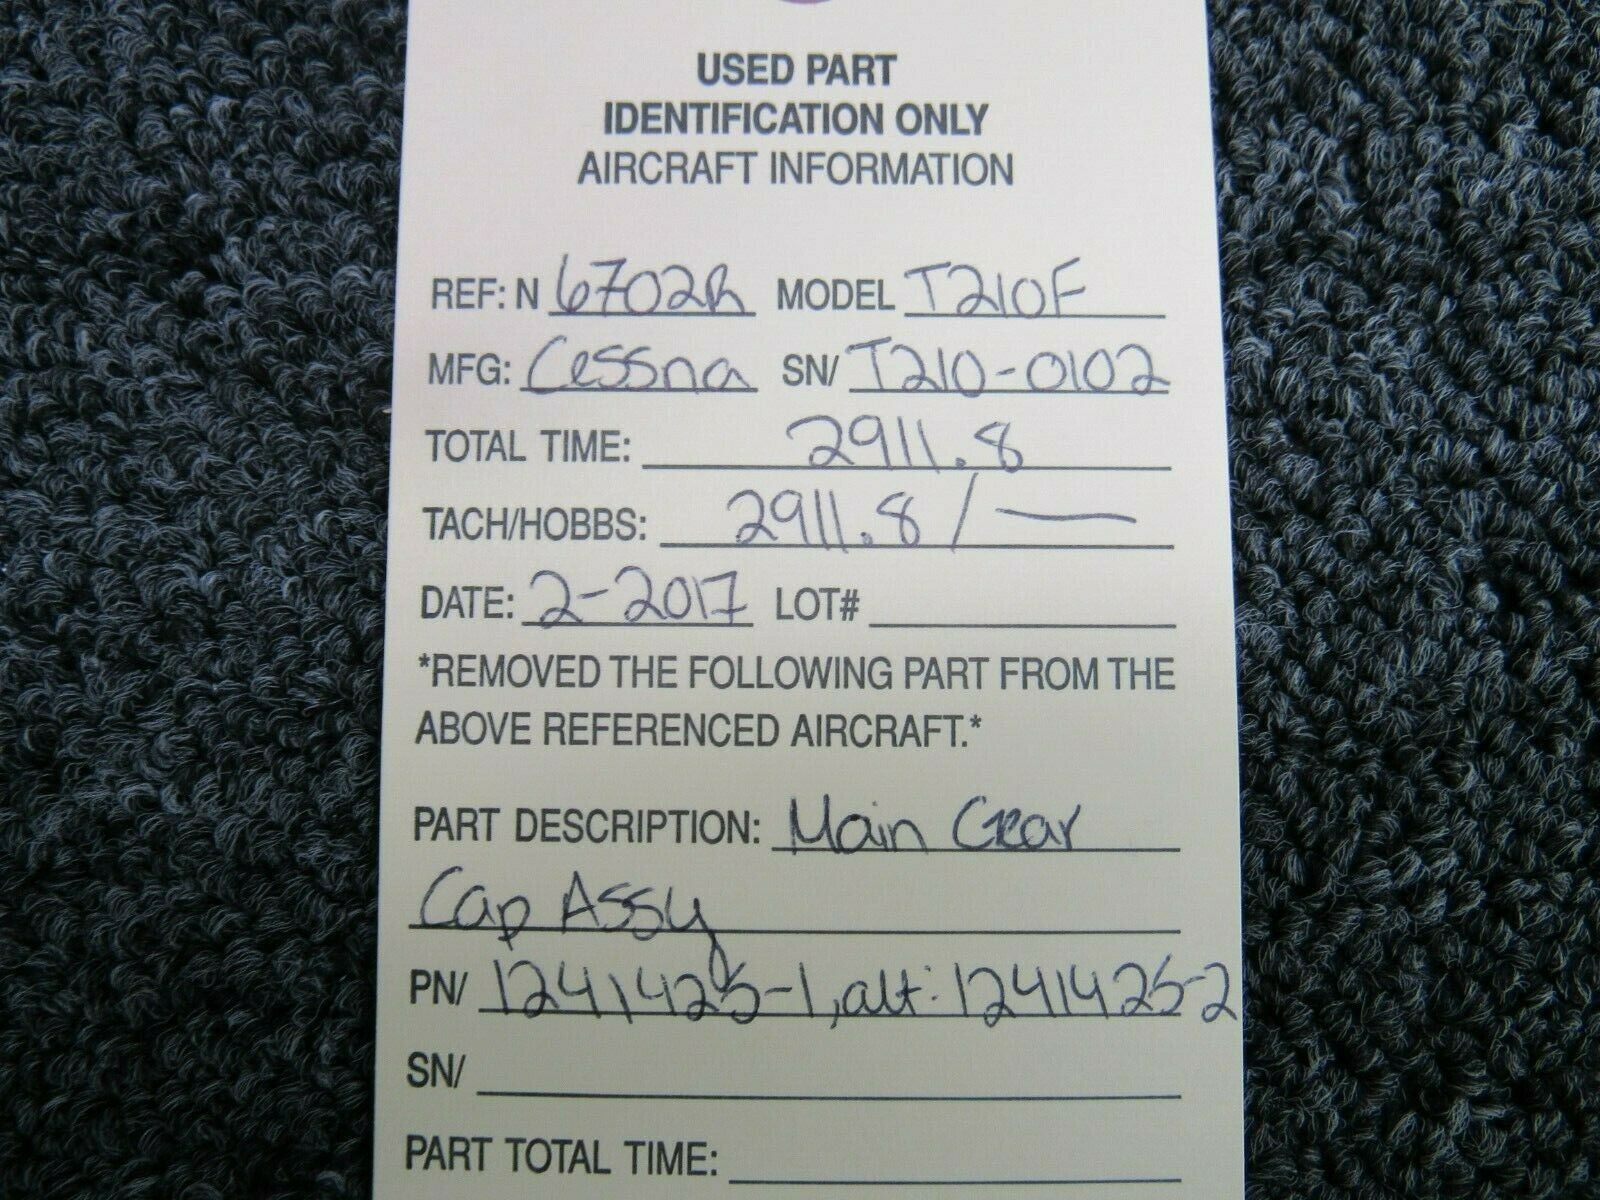 USED PART
IDENTIFICATION ONLY
AIRCRAFT INFORMATION
REF: N 6702R MODEL T210F
MFG: Cessna SN/ T210-0102
TOTAL TIME: 2911.8
TACH/HOBBS: 2911.8 / —
DATE: 2-2017 LOT#
*REMOVED THE FOLLOWING PART FROM THE
ABOVE REFERENCED AIRCRAFT.*
PART DESCRIPTION: Main Gear
Cap Assy
PN/ 1241425-1, alt: 1241425-2
SN/
PART TOTAL TIME: